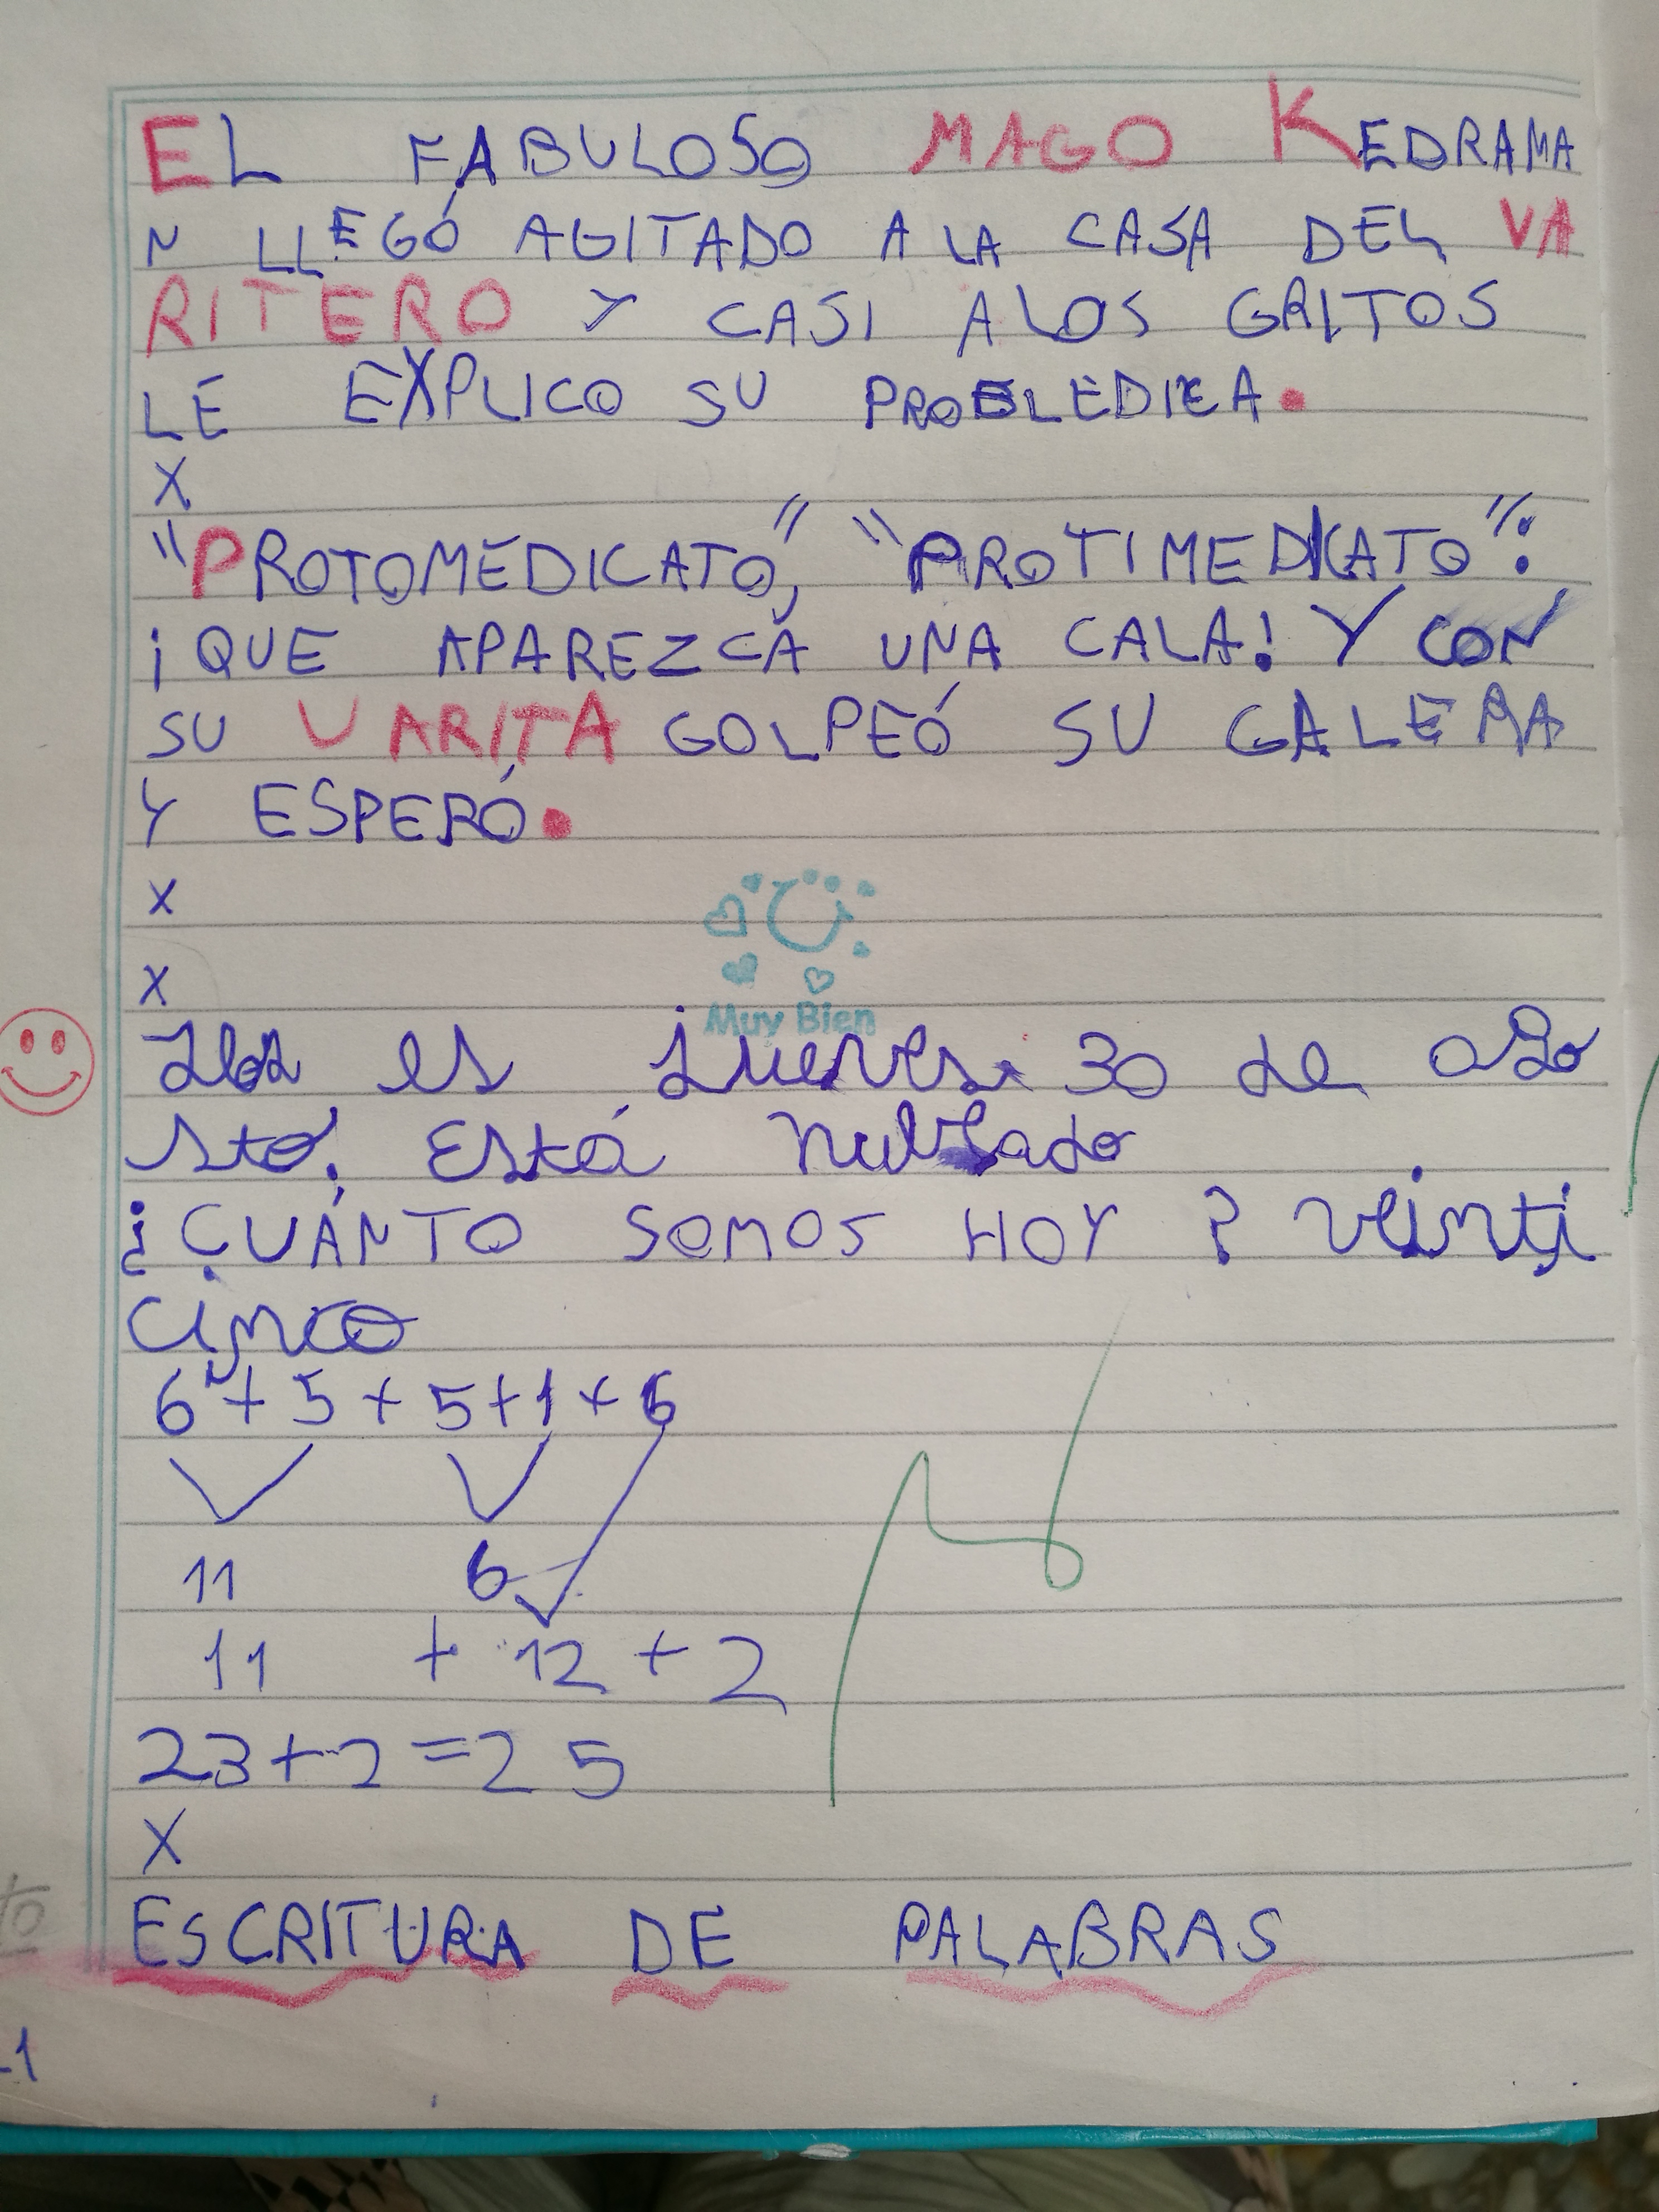 EL FABULOSO MAGO KEDRAMA
N LLEGÓ AGITADO A LA CASA DEL VA
RITERO Y CASI A LOS GRITOS
LE EXPLICO SU
X
"PROTOMEDICATO," "PROTIMEDICATO":
¡QUE APAREZCA UNA CALA! Y CON
SU VARITA GOLPEÓ SU GALERA
Y ESPERÓ.
X
X
Muy Bien
Hoy es jueves 30 de ago
sto. Está nublado
¿CUÁNTO SOMOS HOY? veinti
cinco
6 + 5 + 5 + 1 + 6
11 6
11 + 12 + 2
23 + 2 = 25
X
ESCRITURA DE PALABRAS
to
-1